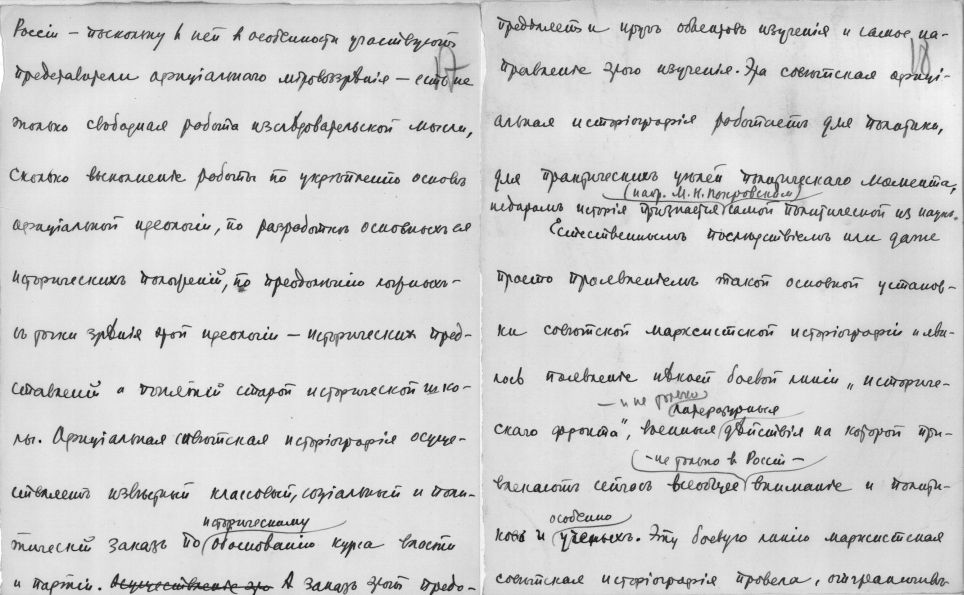 Россіи – поскольку в ней в особенности участвуютъ
17
представители офиціальнаго міровоззрѣнія – есть не
только свободная работа изслѣдовательской мысли,
сколько выполненіе работы по укрѣпленію основъ
офиціальной идеологіи, по разработкѣ основныхъ ея
историческихъ положеній, по преодолѣнію ложныхъ –
съ точки зрѣнія этой идеологіи – историческихъ пред-
ставленій и понятій старой исторической шко-
лы. Офиціальная совѣтская исторіографія осуще-
ствляетъ извѣстный классовый, соціальный и поли-
историческому
тическій заказъ по обоснованію курса власти
и партіи. Осуществленіе это А заказъ этотъ предо-
предѣляетъ и кругъ объектовъ изученія и самое на-
18
правленіе этого изученія. Эта совѣтская офиці-
альная исторіографія работаетъ для политики,
для практическихъ цѣлей политическаго момента,
(напр. М. Н. Покровскимъ)
недаромъ исторія признается самой политической из наукъ.
Естественнымъ послѣдствіемъ или даже
просто проявленіемъ такой основной установ-
ки совѣтской марксистской исторіографіи и яви-
лось появленіе нѣкоей боевой линіи „историче-
– и не только
литературныя
скаго фронта“, военныя дѣйствія на которой при-
– не только в Россіи –
влекаютъ сейчасъ всеобщее вниманіе и полити-
особенно
ковъ и ученыхъ. Эту боевую линію марксистская
совѣтская исторіографія провела, отграничивъ